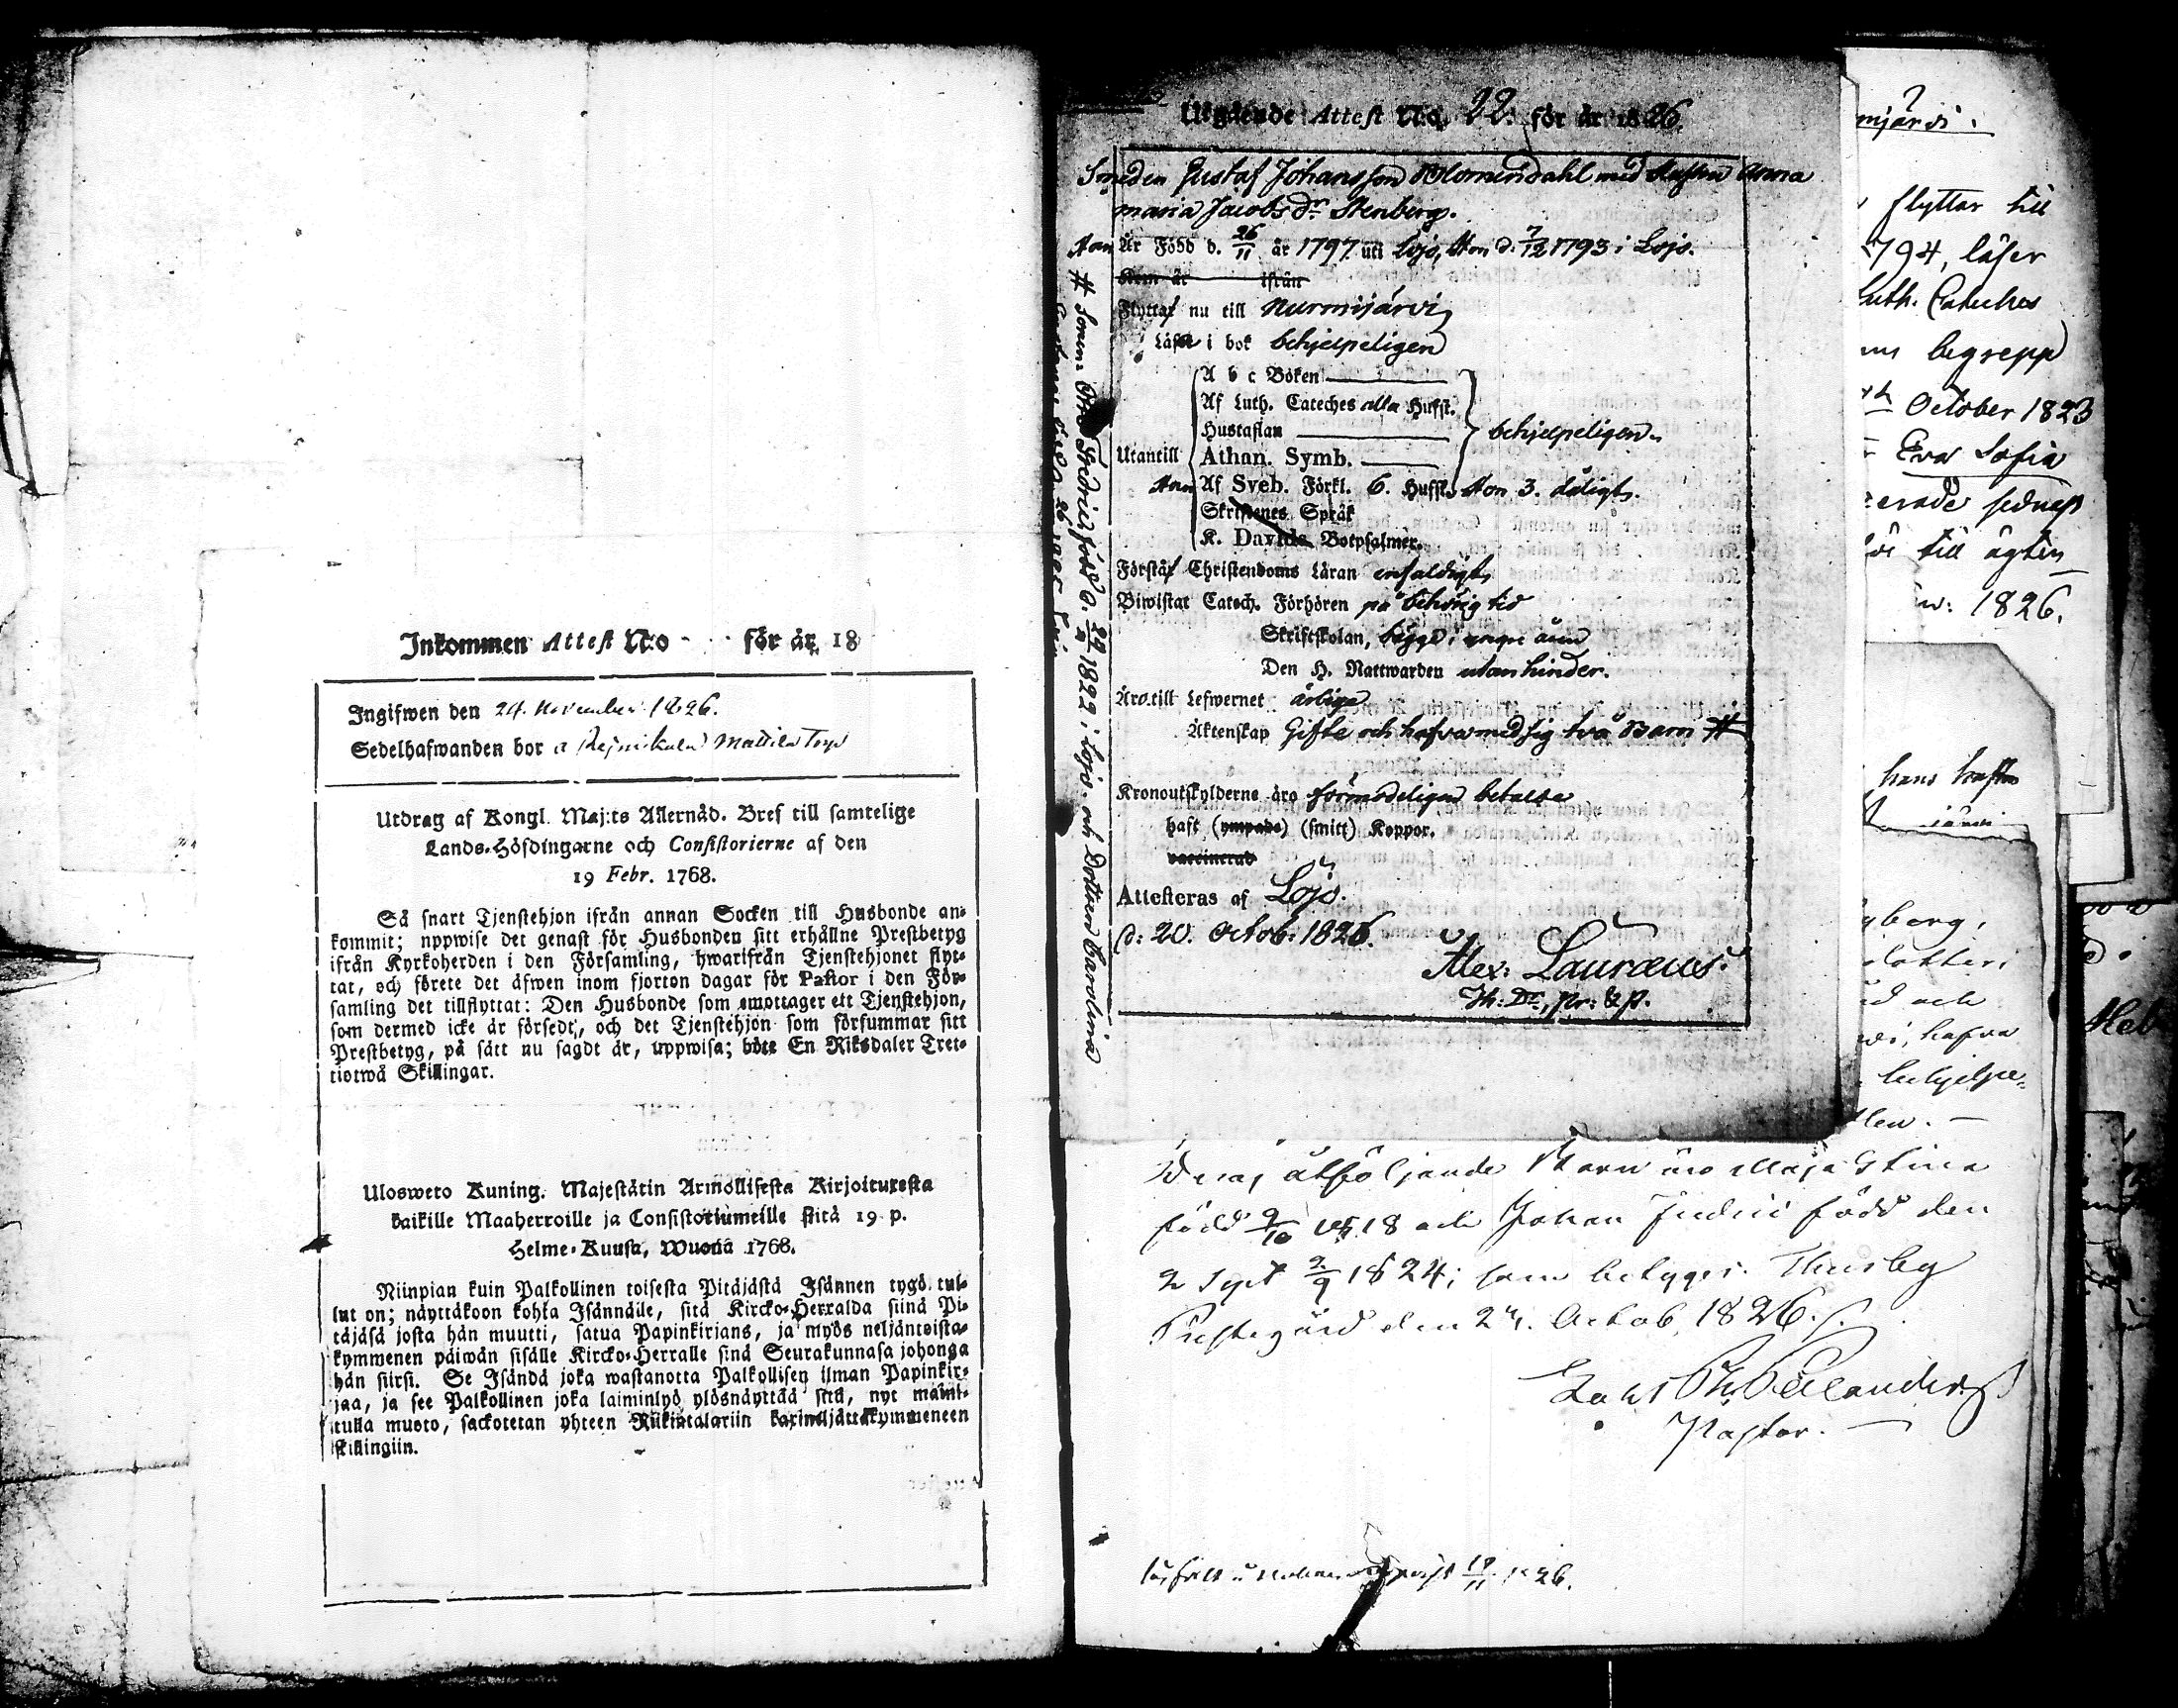 Inkommen Attest N:o för år 18
Ingifwen den 24. November 1826.
Sedelhafwanden bor
Utdrag af Kongl. Maj:ts Allernåd. Bref till samtelige
Lands-Höfdingarne och Consistorierne af den
19 Febr. 1768.
Så snart Tjenstehjon ifrån annan Socken till Husbonde an-
kommit; uppwise det genast för Husbonden sitt erhållne Prestbetyg
ifrån Kyrkoherden i den Församling, hwarifrån Tjenstehjonet flyt-
tat, och förete det äfwen inom fjorton dagar för Pastor i den För-
samling det tillflyttat: Den Husbonde som emottager ett Tjenstehjon,
som dermed icke är försedt, och det Tjenstehjon som försummar sitt
Prestbetyg, på sätt nu sagdt är, uppwisa; böte En Riksdaler Tret-
tiotwå Skillingar.
Ulosweto Kuning. Majestätin Armollisesta Kirjoituxesta
kaikille Maaherroille ja Consistoriumeille siitä 19 p.
Helme-Kuusa, Wuona 1768.
Niinpian kuin Palkollinen toisesta Pitäjästä Isännen tygö tul-
lut on; näyttäkoon kohta Isännälle, sitä Kircko-Herralda siinä Pi-
täjäsä josta hän muutti, saatua Papinkirjans, ja myös neljäntoista-
kymmenen päiwän sisälle Kircko-Herralle sinä Seurakunnasa johonga
hän siirsi. Se Isändä joka wastanotta Palkollisen ilman Papinkir-
jaa, ja see Palkollinen joka laiminlyö ylösnäyttää sitä, nyt maini-
tulla muoto, sackotetan yhteen Riikintalariin kaxineljättäkymmeneen
skillingiin.
Utgående Attest N:o 22. för år 1826.
Smeden Gustaf Johansson Blomendahl med Hustru Anna
Maria Jacobs Dr Stenberg.
Han Är Född d. 26/11 år 1797 uti Lojo, Hon d. 7/12 1793 i Lojo.
Kom är ifrån
Flytta nu till Nurmijärvi
Läsa i bok behjelpeligen
A b c Boken
Af Luth. Cateches alla Hufst.
Hustaflan behjelpeligen
Utantill Athan. Symb.
Han Af Sveb. Förkl. 6. Hufst. Hon 3. dåligt.
Skriftenes Språk
K. Davids Botpsalmer.
Förstå Christendoms Läran enfaldigt
Biwistat Catech. Förhören på behörig tid
Skriftskolan, bägge i
Den H. Nattwarden utan hinder.
Äro till Lefwernet ärlige
Äktenskap Gifte och hafva med sig två Barn #
Kronoutskylderne äro förmodeligen betalte
haft (ympade) (smitt) Koppor.
vaccinerad
Attesteras af Lojo.
d: 20. Octob: 1826.
Alex: Lauræus.
Th: Dr, Pr: & P.
# Sonen Otto Fredric född d. 1822 i Lojo. och Dottren Carolina
Deras åtföljande Barn äro Maja Stina
född 9/10 1818 och Johan Fredric född den
2 Sept 2/9 1824; som betyges. Thusby
Prestegård den 24. Octob. 1826.
Pastor.
mjärvi.
flyttar till
1794, läser
Luth. Cateches
begrepp
October 1823
Eva Sofia
till ägten
1826.
hans hustru
yberg,
dotter
och
hafva
behjelpe-